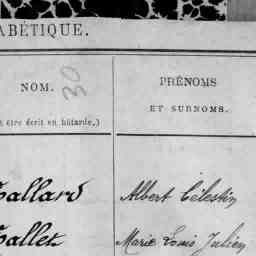 ABÉTIQUE.
NOM. 30
PRÉNOMS
ET SURNOMS.
être écrit en bâtarde.)
allard Albert Célestin
allet Marie Louis Julien